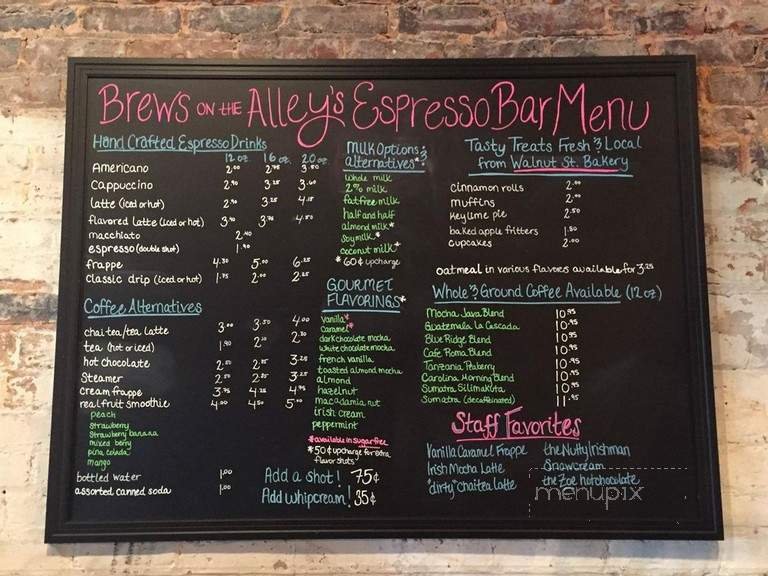 Brews on the Alley's Espresso Bar Menu
Hand Crafted Espresso Drinks
12 oz. 16 oz. 20 oz.
Americano 2.00 2.75
Cappuccino 2.90 3.25 3.60
latte (iced or hot) 2.90 3.25
flavored latte (iced or hot)
macchiato 2.40
espresso (double shot) 1.90
frappe 4.50 5.00 6.25
classic drip (iced or hot) 1.75 2.00 2.25
Coffee Alternatives
chai tea/tea latte 3.00 3.50 4.00
tea (hot or iced) 1.90 2.20
hot chocolate 2.50 3.25
Steamer 2.50 3.25
cream frappe 3.75 4.25
real fruit smoothie 4.00 4.50
peach
strawberry
strawberry banana
mixed berry
pina colada
mango
bottled water 1.00
assorted canned soda 1.00
Milk Options &
alternatives*
whole milk
2% milk
fat free milk
half and half
almond milk*
soy milk*
coconut milk*
*60¢ upcharge
Gourmet
Flavorings*
vanilla*
caramel*
dark chocolate mocha
white chocolate mocha
french vanilla
toasted almond mocha
almond
hazelnut
macadamia nut
irish cream
peppermint
*available in sugar free
*50¢ upcharge for extra
flavor shots*
Add a shot! 75¢
Add whipcream! 35¢
Tasty Treats Fresh & Local
from Walnut St. Bakery
cinnamon rolls 2.00
muffins 2.00
key lime pie 2.50
baked apple fritters 1.50
cupcakes 2.00
oatmeal in various flavors available for 3.25
Whole & Ground Coffee Available (12 oz)
Mocha Java Blend 10.95
Guatemala la Cascada 10.95
Blue Ridge Blend 10.95
Cafe Roma Blend 10.95
Tanzania Peaberry 10.95
Carolina Morning Blend 10.95
Sumatra Silimakuta 10.95
Sumatra (decaffeinated) 11.95
Staff Favorites
Vanilla Caramel Frappe the Nutty Irishman
Irish Mocha Latte Snowcream
"dirty" chai tea latte the Zoe hot chocolate
menupix